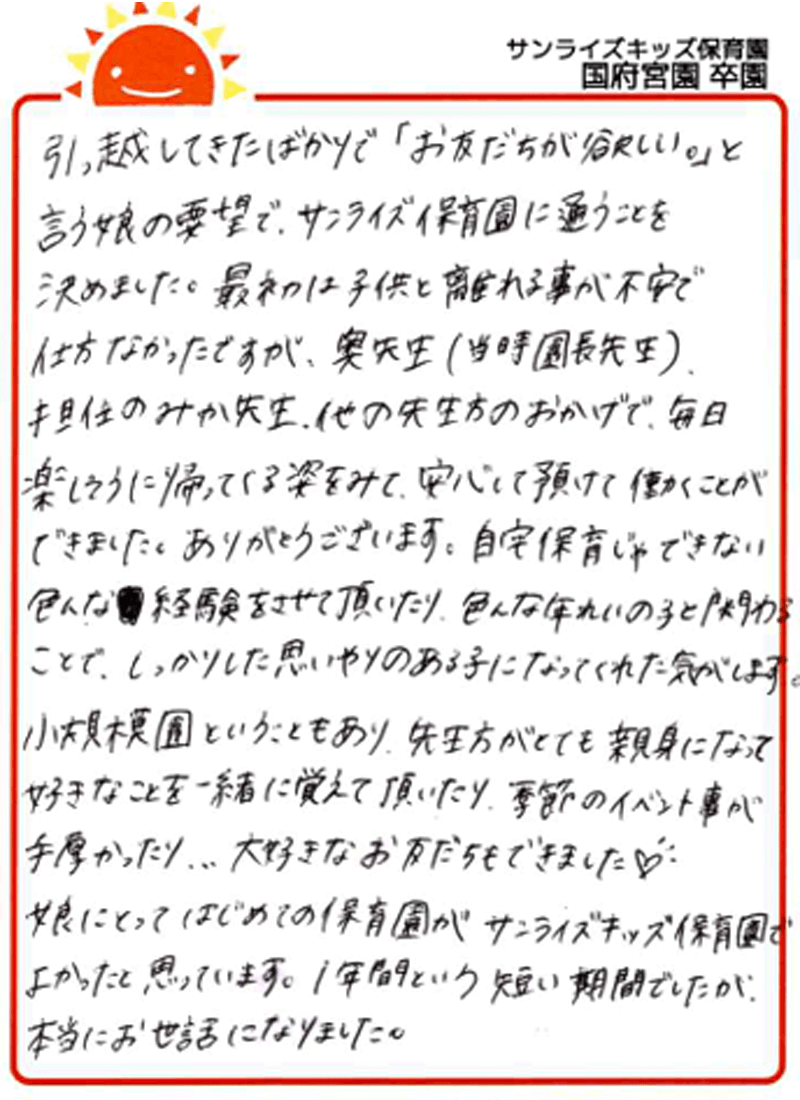 サンライズキッズ保育園
国府宮園 卒園
引っ越してきたばかりで「お友だちが欲しい。」と
言う娘の要望で、サンライズ保育園に通うことを
決めました。最初は子供と離れる事が不安で
仕方なかったですが、奥先生(当時園長先生)、
担任のみか先生、他の先生方のおかげで、毎日
楽しそうに帰ってくる姿をみて、安心して預けて働くことが
できました。ありがとうございます。自宅保育じゃできない
色んな経験をさせて頂いたり、色んな年れいの子と関わる
ことで、しっかりした思いやりのある子になってくれた気がします。
小規模園ということもあり、先生方がとても親身になって
好きなことを一緒に覚えて頂いたり、季節のイベント事が
手厚かったり... 大好きなお友だちもできました♡
娘にとってはじめての保育園が サンライズキッズ保育園で
よかったと思っています。1年間という短い期間でしたが、
本当にお世話になりました。